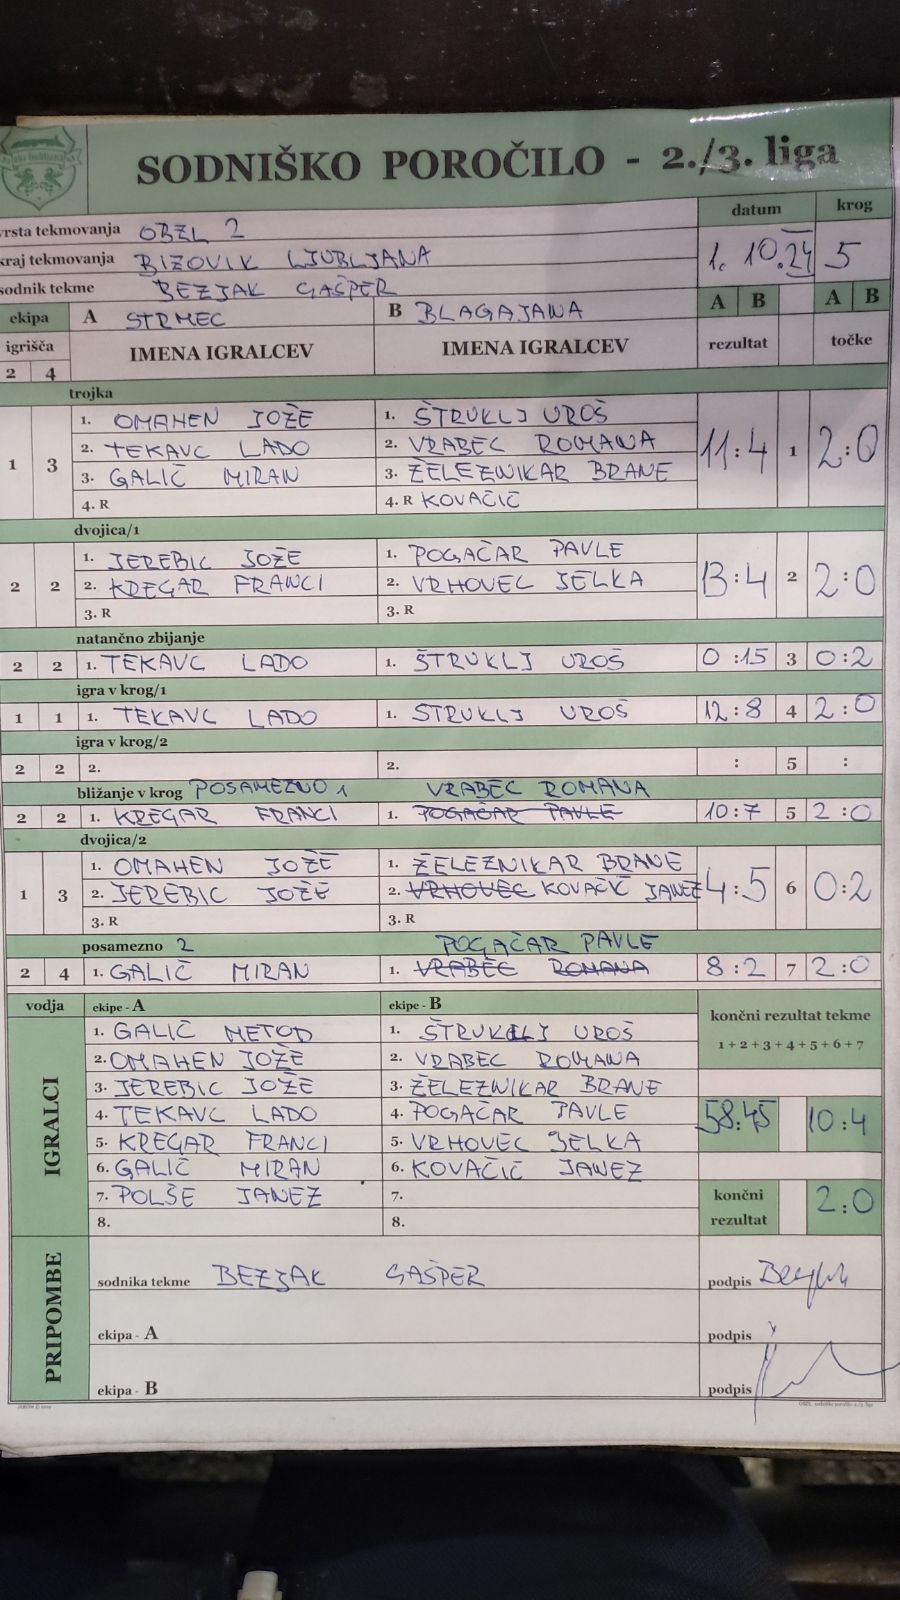 SODNIŠKO POROČILO - 2./3. liga
vrsta tekmovanja OBZL 2
datum krog
kraj tekmovanja BIZOVIK LJUBLJANA
1. 10.24 5
sodnik tekme BEZJAK GAŠPER
ekipa A STRMEC B BLAGAJANA A B A B
igrišča IMENA IGRALCEV IMENA IGRALCEV rezultat točke
2 4
trojka
1. OMAHEN JOŽE 1. ŠTRUKLJ UROŠ
2. TEKAVC LADO 2. VRABEC ROMANA
1 3 11:4 1 2:0
3. GALIČ MIRAN 3. ŽELEZNIKAR BRANE
4. R 4. R KOVAČIČ
dvojica/1
1. JEREBIC JOŽE 1. POGAČAR PAVLE
2 2 2. KREGAR FRANCI 2. VRHOVEC JELKA 13:4 2 2:0
3. R 3. R
natančno zbijanje
2 2 1. TEKAVC LADO 1. ŠTRUKLJ UROŠ 0:15 3 0:2
igra v krog/1
1 1 1. TEKAVC LADO 1. ŠTRUKLJ UROŠ 12:8 4 2:0
igra v krog/2
2 2 2. 2. : 5 :
bližanje v krog POSAMEZNO 1 VRABEC ROMANA
2 2 1. KREGAR FRANCI 1. POGAČAR PAVLE 10:7 5 2:0
dvojica/2
1. OMAHEN JOŽE 1. ŽELEZNIKAR BRANE
1 3 2. JEREBIC JOŽE 2. VRHOVEC KOVAČIČ JANEZ 4:5 6 0:2
3. R 3. R
posamezno 2 POGAČAR PAVLE
2 4 1. GALIČ MIRAN 1. VRABEC ROMANA 8:2 7 2:0
vodja ekipe - A ekipe - B
končni rezultat tekme
1 + 2 + 3 + 4 + 5 + 6 + 7
IGRALCI
1. GALIČ METOD 1. ŠTRUKLJ UROŠ
2. OMAHEN JOŽE 2. VRABEC ROMANA
3. JEREBIC JOŽE 3. ŽELEZNIKAR BRANE
4. TEKAVC LADO 4. POGAČAR PAVLE 58:45 10:4
5. KREGAR FRANCI 5. VRHOVEC JELKA
6. GALIČ MIRAN 6. KOVAČIČ JANEZ
7. POLŠE JANEZ 7.
8. 8.
končni rezultat 2:0
PRIPOMBE
sodnika tekme BEZJAK GAŠPER podpis
ekipa - A podpis
ekipa - B podpis